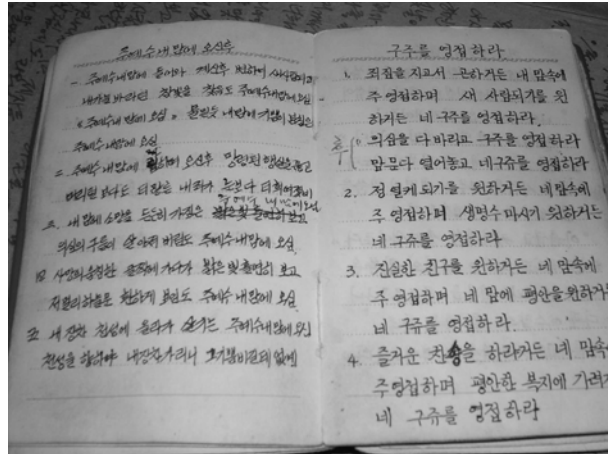 주예수 내맘에 오신후
一. 주예수내맘에 들어와 계신후 변하여 새사람이고
내가늘바라던 참빛을 찾음도 주예수내맘에오심
《주예수내맘에 오심》 물밀듯 내맘에 기쁨이
주예수내맘에 오심
二. 주예수내맘에 오신후 망령된 행실을 끊고
머리털보다도 더많던 내죄가 눈보다 더희어졌네
주예수 내맘에오심
三. 내맘에 소망을 든든히 가짐은 주예수내맘에 오심
의심의 구름이 사라져 버림도 주예수내맘에 오심
四 사망의음침한 골짝에가다가 밝은빛 홀연히 보고
저멀리하늘문 환하게 보임도 주예수내맘에 오심
五 내 천성에 올라가 살기는 주예수내맘에 오심
천성을 향하여 내 가리니 그기쁨비길데없네
구주를 영접하라
1. 죄짐을 지고서 곤하거든 네 맘속에
주 영접하며 새 사람되기를 원
하거든 네구주를 영접하라.
후( 의심을 다 바리고 구주를 영접하라
맘문다 열어놓고 네구쥬를 영접하라
2. 정결케 되기를 원하거든 네맘속에
주 영접하며 생명수 마시기 원하거든
네 구쥬를 영접하라
3. 진실한 친구를 원하거든 네 맘속에
주 영접하며 네 맘에 평안을원하거
네 구쥬를 영접하라.
4. 즐거운 찬송을 하라거든 네 맘속
주영접하며 평안한 복지에 가려거
네 구쥬를 영접하라